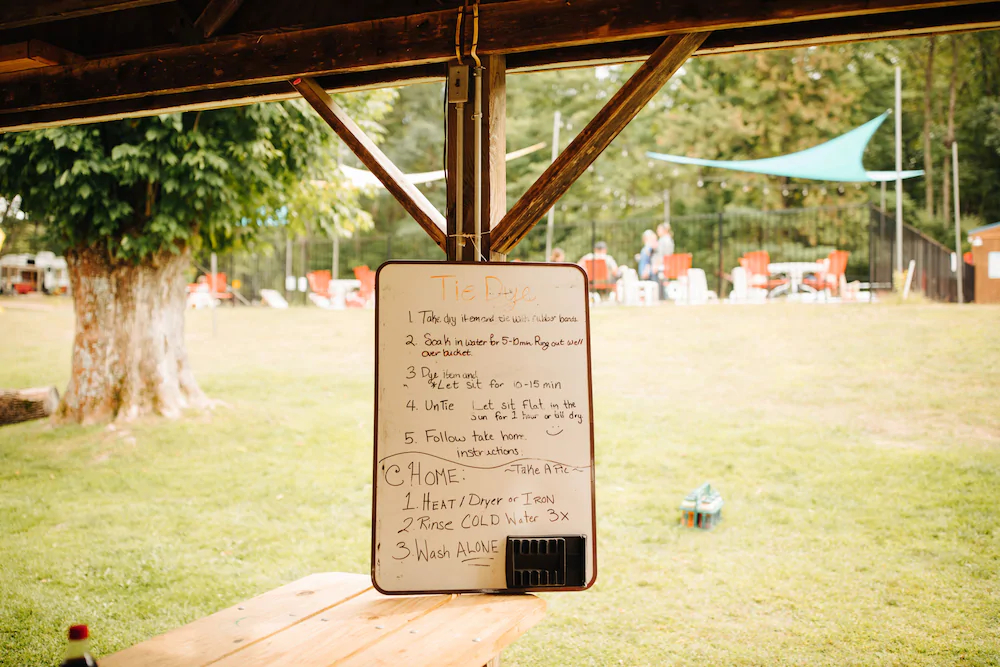 Tie Dye
1. Take dry item and tie with rubber bands
2. Soak in water for 5-10min. Ring out well
over bucket.
3 Dye item and
*Let sit for 10-15 min
4. UnTie Let sit flat in the
sun for 1 hour or till dry
5. Follow take home
instructions.
@ HOME: ~Take A Pic~
1. HEAT / Dryer or IRON
2 Rinse COLD Water 3x
3. Wash ALONE